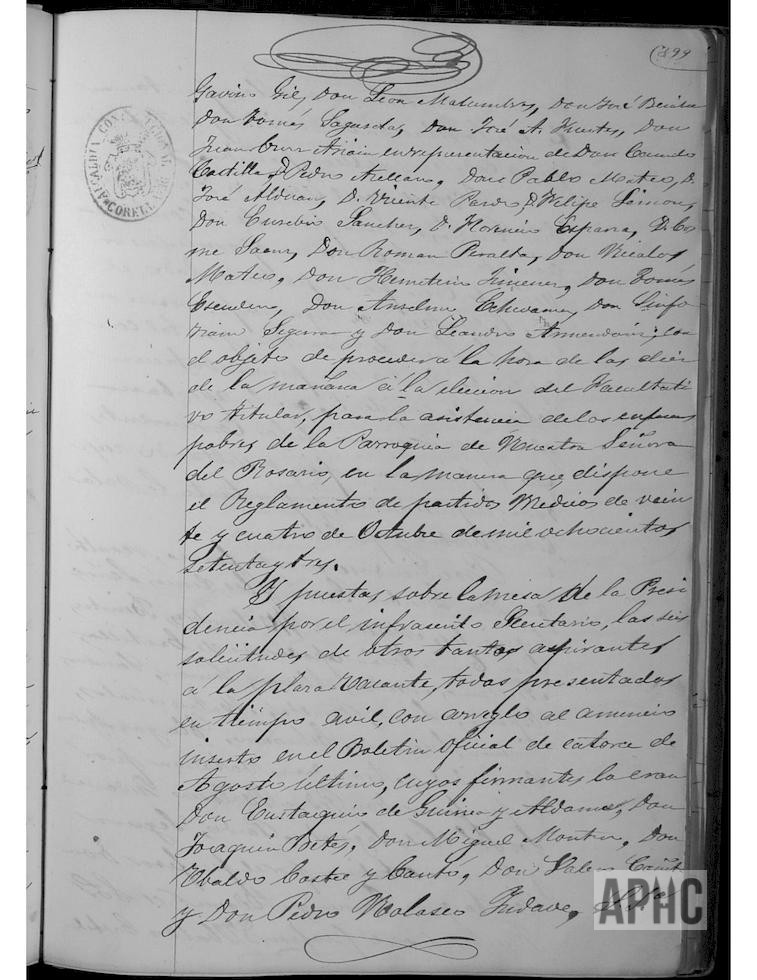 899
ALCALDIA CONSTITUCIONAL
CORELLA
Gavino Gil, Don Leon Matumbres, Don José Benito
Don Tomás Sagasda, Don José A. Huarte, Don
Juan Cruz Arnain en representacion de Don Conrado
Castilla, D. Pedro Arellano, Don Pablo Mateo, D.
José Alduan, D. Vicente Pardo, D. Felipe Simon,
Don Eusebio Sanchez, D. Florencio Esparza, D. Cos
me Saenz, Don Roman Peralta, Don Nicolas
Mateo, Don Hemeterio Jimenez, Don Tomás
Escudero, Don Anselmo Echevarria, Don Sinfo
riano Segura y Don Leandro Armendariz; con
el objeto de proceder á la hora de las diez
de la mañana á la eleccion del Facultati
vo titular, para la asistencia de los enfermos
pobres de la Parroquia de Nuestra Señora
del Rosario, en la manera que dispone
el Reglamento de partidos Medicos de vein
te y cuatro de Octubre de mil ochocientos
setenta y tres.
Y puestas sobre la mesa de la Presi
dencia por el infrascrito Secretario, las seis
solicitudes de otros tantos aspirantes
á la plaza vacante, todas presentadas
en tiempo avil, con arreglo al anuncio
inserto en el Boletin Oficial de catorce de
Agosto último, cuyos firmantes lo eran
Don Eustaquio de Guinea y Aldama, Don
Joaquin Betés, Don Miguel Montor, Don
Ubaldo Castor y Cantó, Don Valero
y Don Pedro Nolasco Indave,
APHC